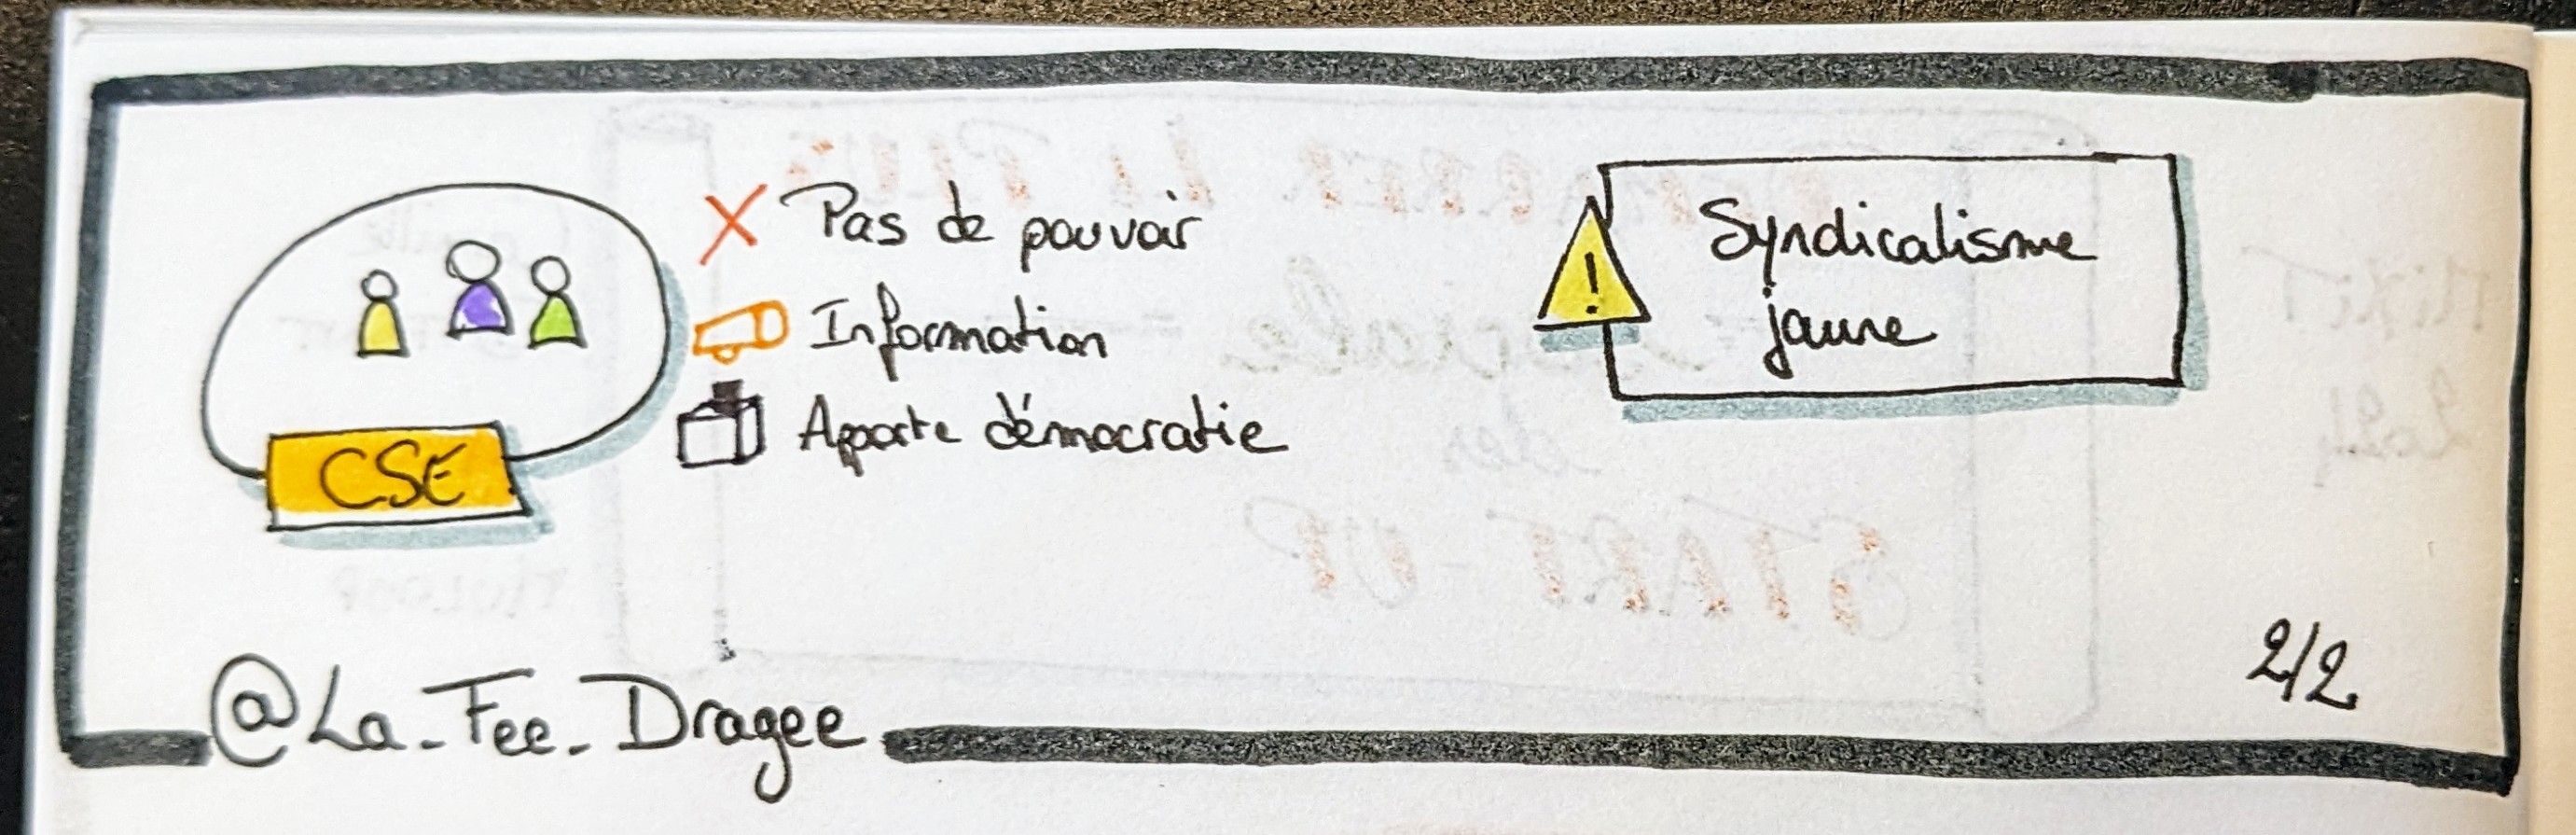 Pas de pouvoir
Information
Apporte démocratie
CSE
!
Syndicalisme
jaune
@La_Fee_Dragee
2/2